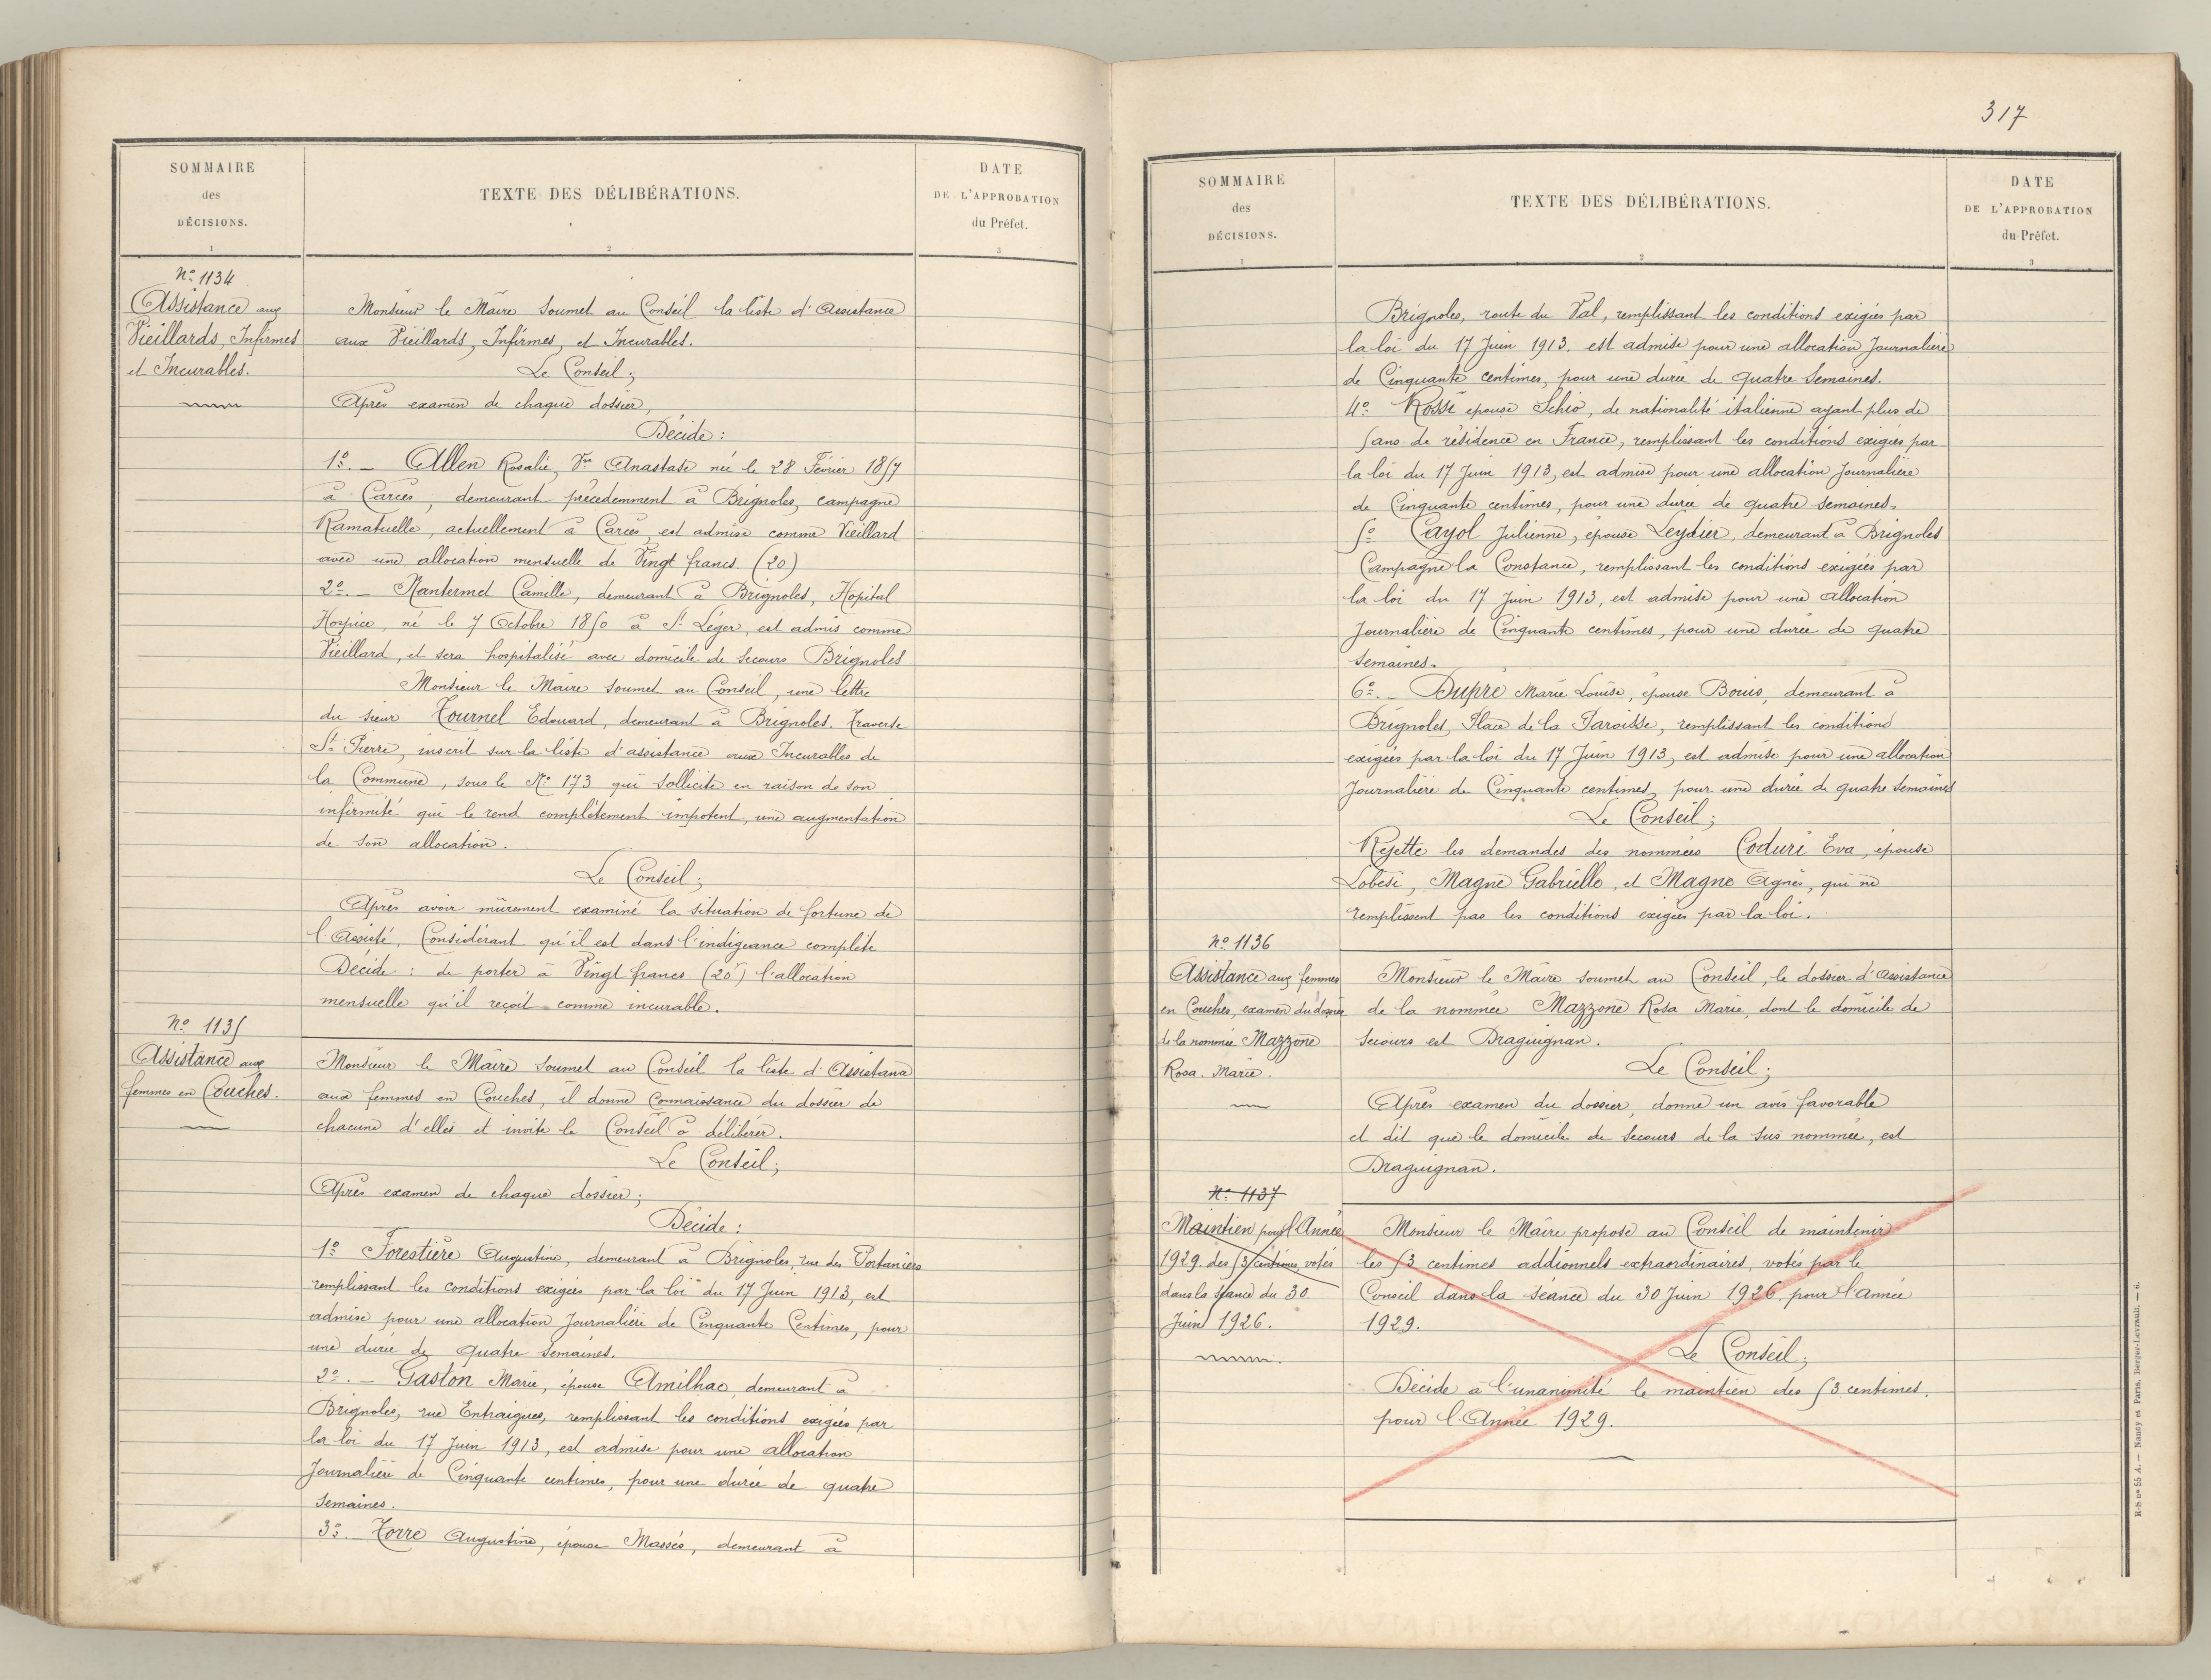 SOMMAIRE
des
DÉCISIONS.
1
TEXTE DES DÉLIBÉRATIONS.
2
DATE
DE L'APPROBATION
du Préfet.
3
No 1134
Assistance aux
Vieillards, Infirmes
et Incurables.
Monsieur le Maire soumet au Conseil la liste d'Assistance
aux Vieillards, Infirmes, et Incurables.
Le Conseil;
Après examen de chaque dossier,
Décide:
1o. – Allen Rosalie, Vve Anastase née le 28 Février 1857
à Carcès, demeurant précédemment à Brignoles, campagne
Ramatuelle, actuellement à Carcès, est admise comme Vieillard
avec une allocation mensuelle de Vingt francs (20)
2o. – Nantermet Camille, demeurant à Brignoles, Hopital
Hospice, né le 7 Octobre 1850 à St Léger, est admis comme
Vieillard, et sera hospitalisé avec domicile de secours Brignoles
Monsieur le Maire soumet au Conseil, une lettre
du sieur Tournel Edouard, demeurant à Brignoles. Traverse
St Pierre, inscrit sur la liste d'assistance aux Incurables de
la Commune, sous le No 173 qui sollicite en raison de son
infirmité qui le rend complètement impotent, une augmentation
de son allocation.
Le Conseil;
Après avoir mûrement examiné la situation de fortune de
l'Assisté, Considérant qu'il est dans l'indigeance complète
Décide: de porter à Vingt francs (20f) l'allocation
mensuelle qu'il reçoit comme incurable.
No 1135
Assistance aux
femmes en Couches.
Monsieur le Maire soumet au Conseil la liste d'Assistance
aux femmes en Couches, il donne connaissance du dossier de
chacune d'elles et invite le Conseil à délibérer.
Le Conseil;
Après examen de chaque dossier;
Décide:
1o Forestière Augustine, demeurant à Brignoles, rue des Portaniers
remplissant les conditions exigées par la loi du 17 Juin 1913, est
admise pour une allocation Journalière de Cinquante Centimes, pour
une durée de quatre semaines.
2o. – Gaston Marie, épouse Amilhac, demeurant à
Brignoles, rue Entraigues, remplissant les conditions exigées par
la loi du 17 Juin 1913, est admise pour une allocation
Journalière de Cinquante centimes, pour une durée de quatre
semaines.
3o. – Torre Augustine, épouse Massés, demeurant à
317
SOMMAIRE
des
DÉCISIONS.
1
TEXTE DES DÉLIBÉRATIONS.
2
DATE
DE L'APPROBATION
du Préfet.
3
Brignoles, route du Val, remplissant les conditions exigées par
la loi du 17 Juin 1913. est admise pour une allocation Journalière
de Cinquante centimes, pour une durée de quatre semaines.
4o. Rossi épouse Schio, de nationalité italienne ayant plus de
5 ans de résidence en France, remplissant les conditions exigées par
la loi du 17 Juin 1913, est admise pour une allocation Journalière
de Cinquante centimes, pour une durée de quatre semaines.
5o Cayol Julienne, épouse Leydier, demeurant à Brignoles
Campagne la Constance, remplissant les conditions exigées par
la loi du 17 Juin 1913, est admise pour une allocation
Journalière de Cinquante centimes, pour une durée de quatre
semaines.
6o. – Dupré Marie Louise, épouse Bouis, demeurant à
Brignoles, Place de la Paroisse, remplissant les conditions
exigées par la loi du 17 Juin 1913, est admise pour une allocation
Journalière de Cinquante centimes, pour une durée de quatre semaines
Le Conseil;
Rejette les demandes des nommées Coduri Eva, épouse
Lobesi, Magne Gabrielle, et Magne Agnès, qui ne
remplissent pas les conditions exigées par la loi.
No 1136
Assistance aux femmes
en Couches, examen du dossier
de la nommée Mazzone
Rosa. Marie.
Monsieur le Maire soumet au Conseil, le dossier d'Assistance
de la nommée Mazzone Rosa Marie, dont le domicile de
secours est Draguignan.
Le Conseil;
Après examen du dossier, donne un avis favorable
et dit que le domicile de secours de la sus nommée, est
Draguignan.
No 1137
Maintien pour l'Année
1929. des 53 centimes votés
dans la séance du 30
Juin 1926.
Monsieur le Maire propose au Conseil de maintenir
les 53 centimes addionnels extraordinaires, votés par le
Conseil dans la séance du 30 Juin 1926. pour l'année
1929.
Le Conseil;
Décide à l'unanimité le maintien des 53 centimes.
pour l'Année 1929.
R-b no 55 A. — Nancy et Paris, Berger-Levrault. — 6.